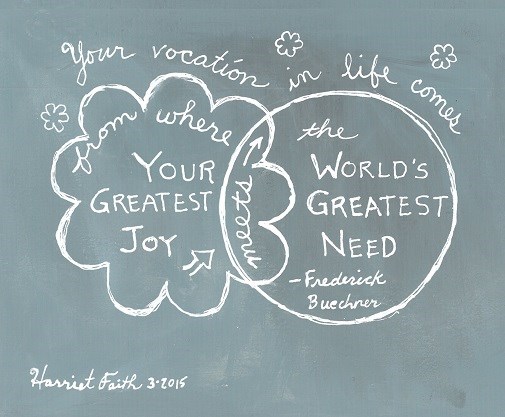 Your vocation in life comes
from where
YOUR
GREATEST
JOY
meets
the
WORLD'S
GREATEST
NEED
-Frederick
Buechner
Harriet Faith 3-2015